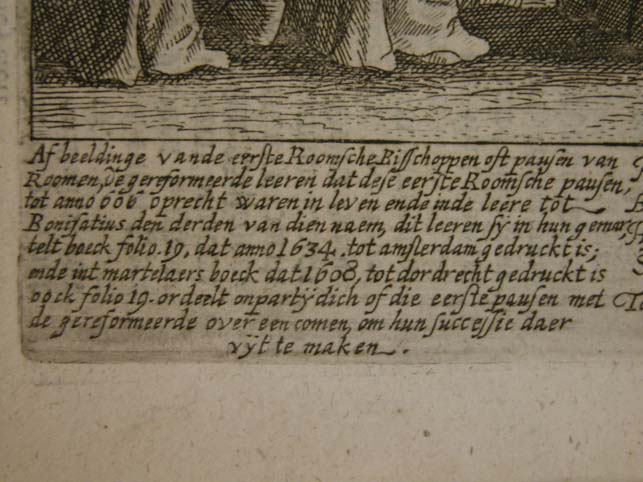 Af beeldinge vande eerste Roomsche Bisschoppen oft pausen van
Roomen, De gereformeerde leeren dat dese eerste Roomsche pausen,
tot anno 606 oprecht waren in leven ende inde leere tot
Bonifatius den derden van dien naem, dit leeren sÿ in hun gemar
telt boeck folio. 19, dat anno 1634. tot amsterdam gedruckt is;
ende int martelaers boeck dat 1608, tot dordrecht gedruckt is
oock folio 19. ordeelt onpartÿdich of die eerste pausen met
de gereformeerde over een comen, om hun successie daer
vÿt te maken.